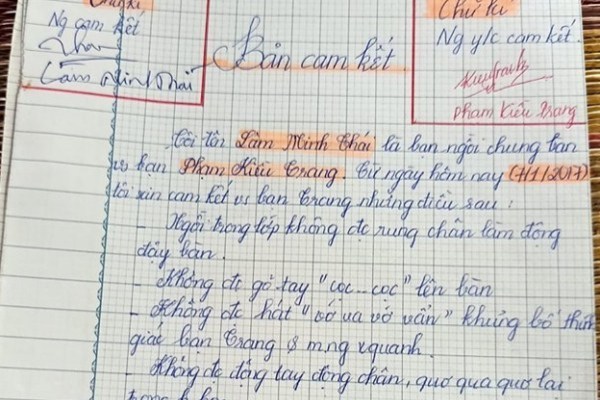 Chữ kí
Ng cam kết
Lâm Minh Thái
Bản cam kết
Chữ kí
Ng y/c cam kết.
Phạm Kiều Trang
Tôi tên Lâm Minh Thái là bạn ngồi chung bàn
vs bạn Phạm Kiều Trang. Từ ngày hôm nay (7/1/2017)
tôi xin cam kết vs bạn Trang những điều sau :
- Ngồi trong lớp không đc rung chân làm động
đậy bàn.
- Không đc gõ tay "cọc_cọc" lên bàn
- Không đc hát "vớ va vớ vẩn" khủng bố thính
giác bạn Trang & m.ng xquanh.
- Không đc động tay động chân, quơ qua quơ lại